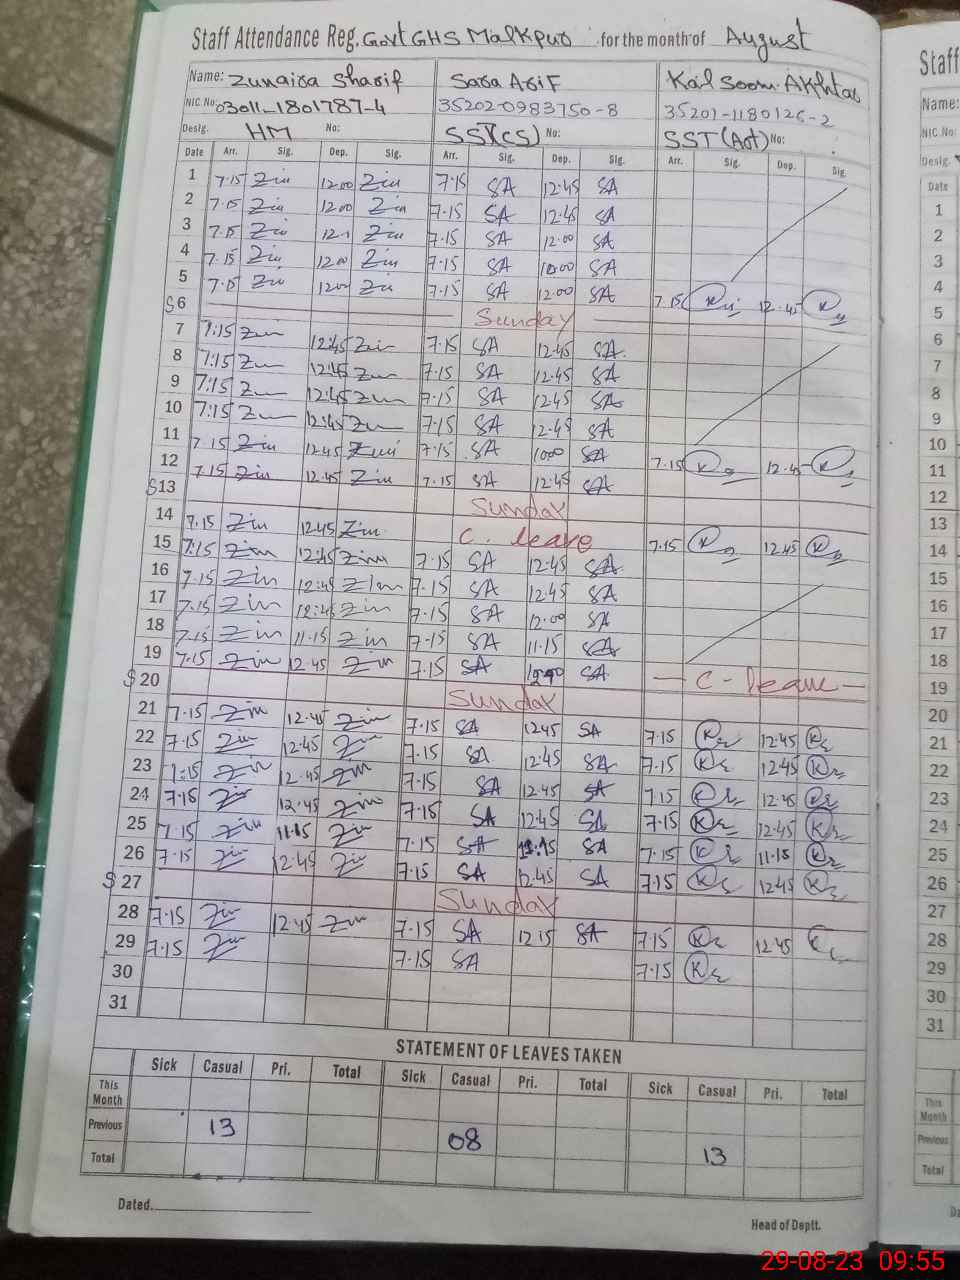 Staff Attendance Reg. Govt GHS Malkpur for the month of August
Name: Zunaira Sharif Sara Arif Kalsoom Akhtar
NIC.No: 03011-1801787-4 35202-0983750-8 35201-1180126-2
Desig. HM No: SST(CS) No: SST(Art) No:
Date Arr. Sig. Dep. Sig. Arr. Sig. Dep. Sig. Arr. Sig. Dep. Sig.
1 7.15 Zin 12.00 Zin 7.15 SA 12.45 SA
2 7.15 Zin 12.00 Zin 7.15 SA 12.45 SA
3 7.15 Zin Zin 7.15 SA 12.00 SA
4 7.15 Zin 12.00 Zin 7.15 SA SA
5 7.15 Zin 1200 Zin 7.15 SA 12.00 SA 7.15 12.45
S 6 Sunday
7 7:15 Zin 12:45 Zin 7.15 SA 12.45 SA
8 7:15 Zin 12:45 Zin 7.15 SA 12.45 SA
9 7:15 Zin 12:45 Zin 7.15 SA 12.45 SA
10 7:15 Zin 12:45 Zin 7.15 SA 12.45 SA
11 7.15 Zin 12.45 Zin 7.15 SA SA 7.15 12.45
12 7.15 Zin 12.45 Zin 7.15 SA 12.45 SA
S 13 Sunday
14 7.15 Zin 12.45 Zin C. leave 7.15 12.45
15 7:15 Zin 12:45 Zin 7.15 SA 12.45 SA
16 7.15 Zin 12:45 Zin 7.15 SA 12.45 SA
17 7.15 Zin 12:45 Zin 7.15 SA 12.00 SA
18 7.15 Zin 11.15 Zin 7.15 SA 11.15 SA
19 7.15 Zin 12.45 Zin 7.15 SA SA C-leave
S 20 Sunday
21 7.15 Zin 12.45 Zin 7.15 SA 12.45 SA 7.15 12.45
22 7.15 Zin 12.45 Zin 7.15 SA 12.45 SA 7.15 12.45
23 7:15 Zin 12.45 Zin 7.15 SA 12.45 SA 7.15 12.45
24 7.15 Zin 12.45 Zin 7.15 SA 12.45 SA 7.15 12.45
25 7.15 Zin 11.15 Zin 7.15 SA 11.15 SA 7.15 11.15
26 7.15 Zin 12.45 Zin 7.15 SA 12.45 SA 7.15 12.45
S 27 Sunday
28 7.15 Zin 12.45 Zin 7.15 SA 12.15 SA 7.15 12.45
29 7.15 Zin 7.15 SA 7.15
30
31
STATEMENT OF LEAVES TAKEN
Sick Casual Pri. Total Sick Casual Pri. Total Sick Casual Pri. Total
This Month
Previous 13 08 13
Total
Dated.
Head of Deptt.
Staff
Name:
NIC.No:
Desig.
Date
1
2
3
4
5
6
7
8
9
10
11
12
13
14
15
16
17
18
19
20
21
22
23
24
25
26
27
28
29
30
31
This
Month
Previous
Total
29-08-23 09:55